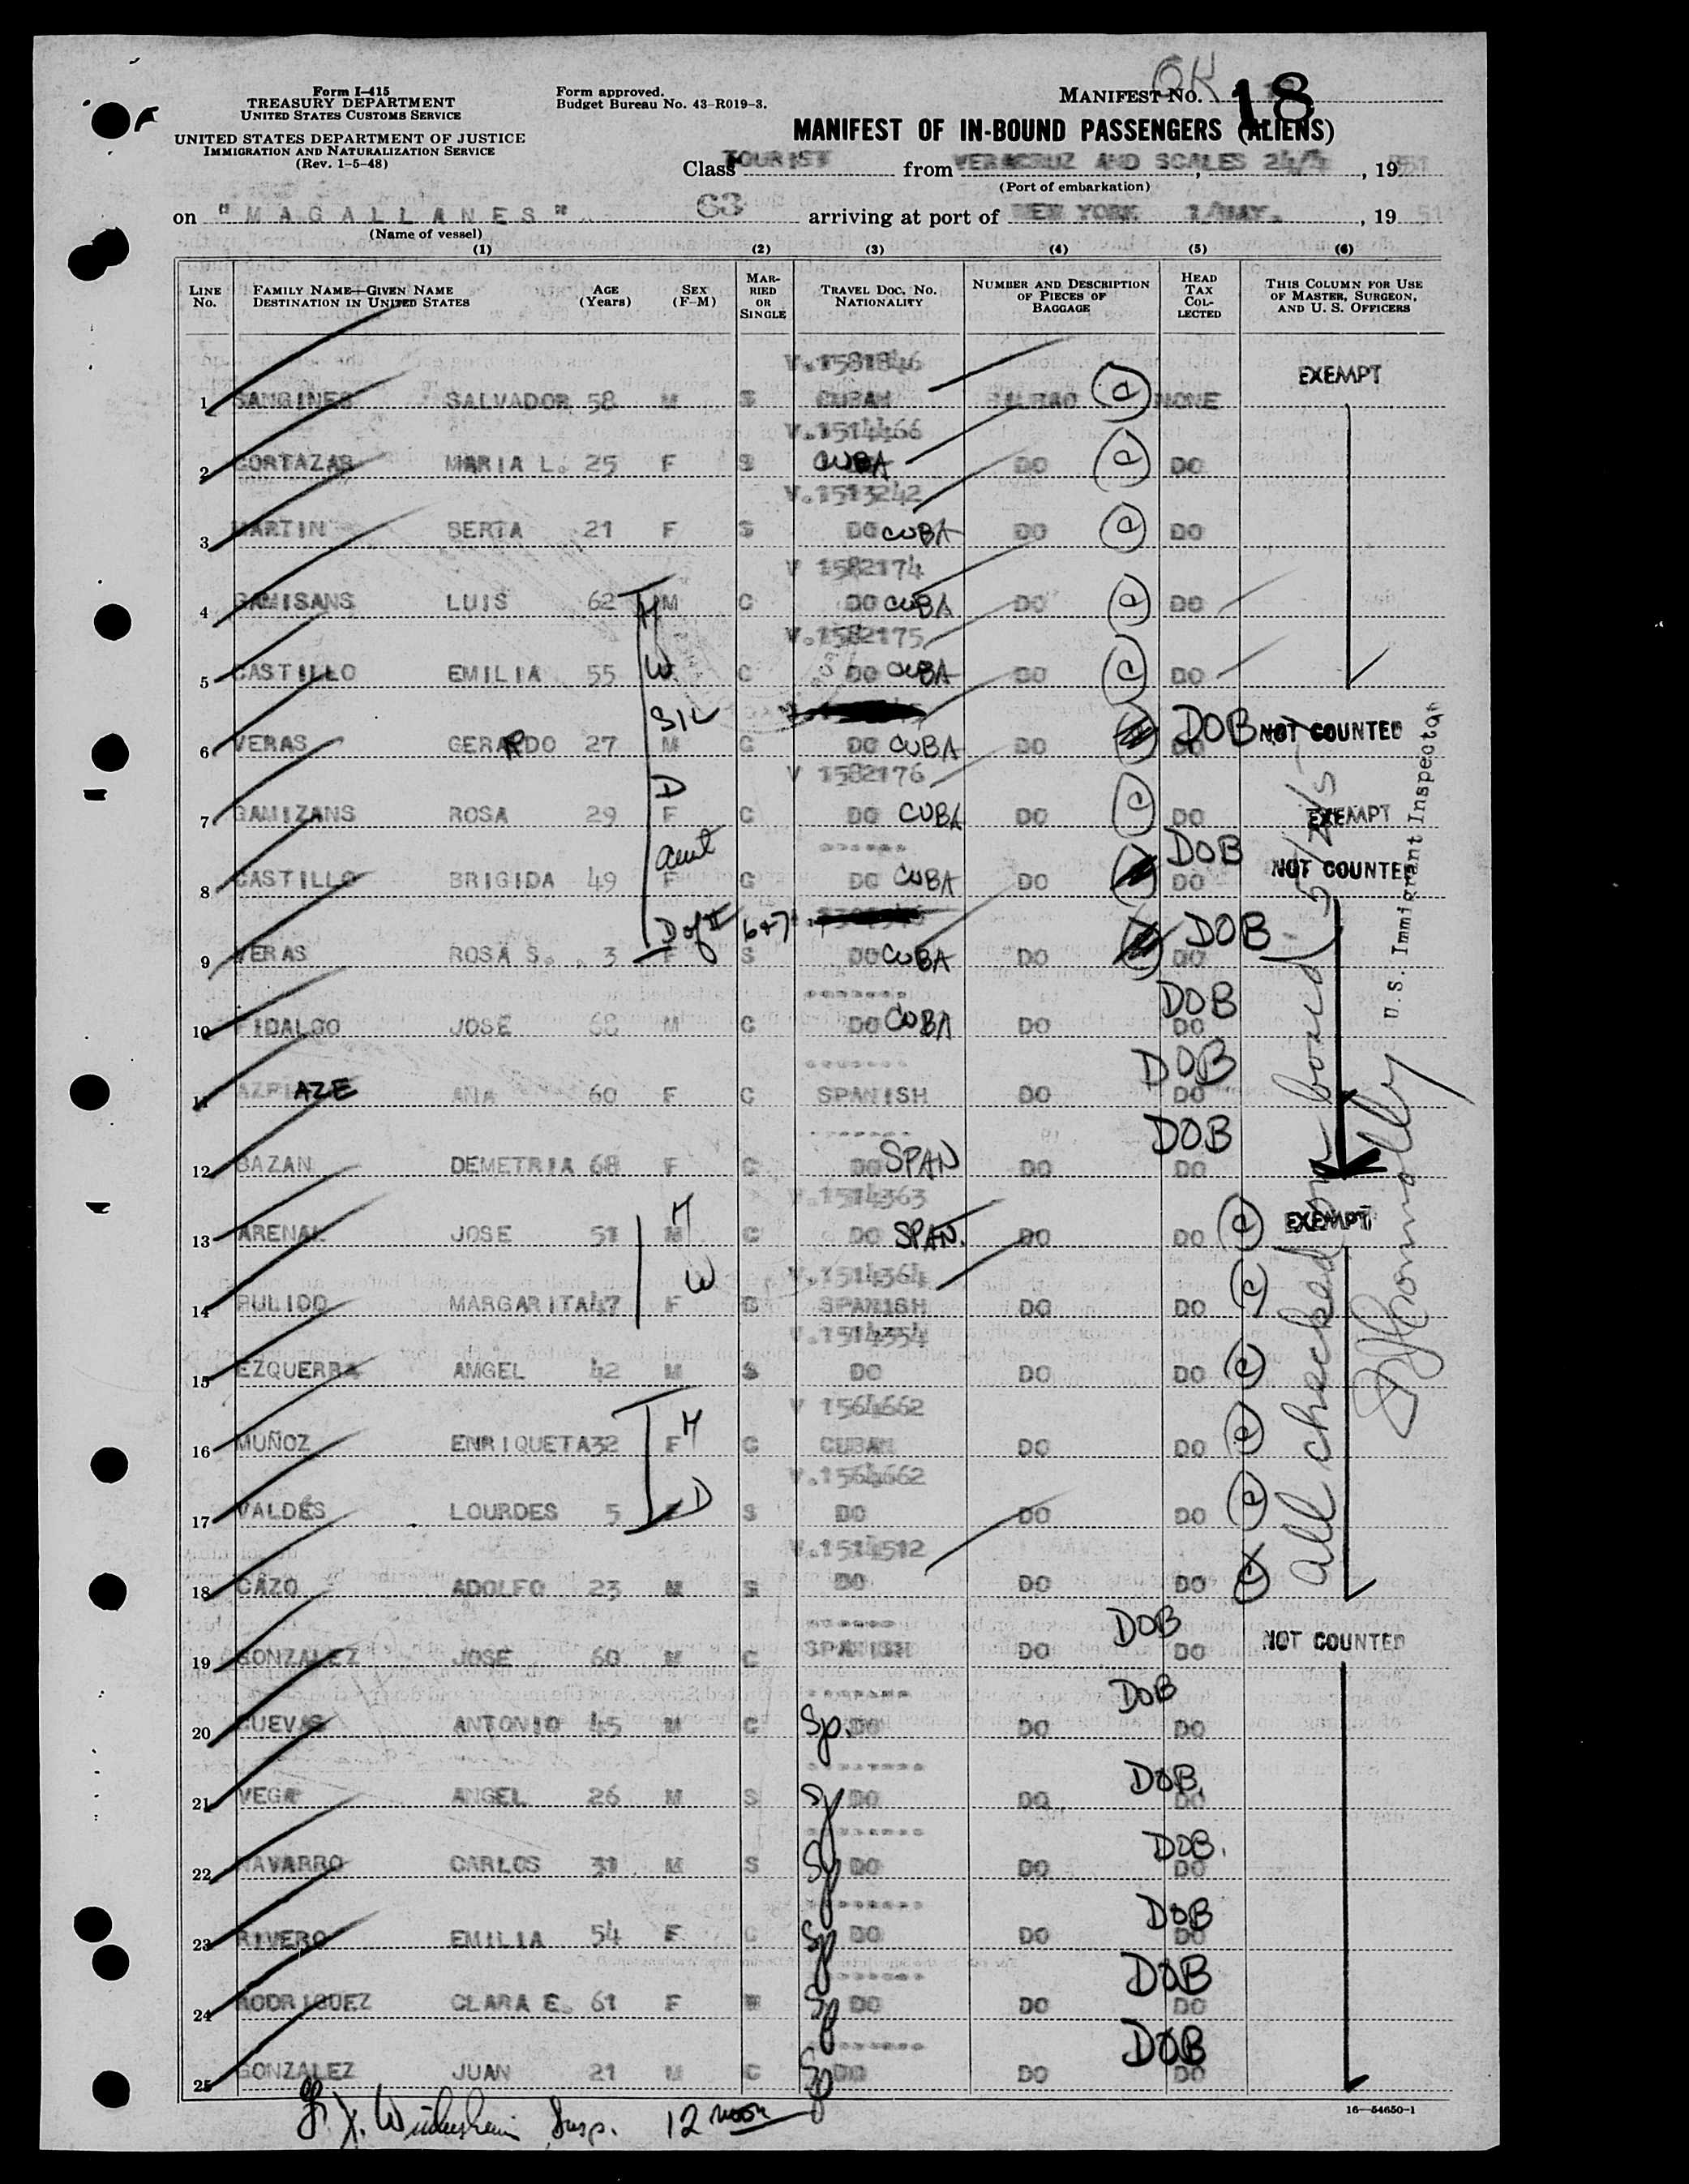 OK
Form I-415
TREASURY DEPARTMENT
UNITED STATES CUSTOMS SERVICE
UNITED STATES DEPARTMENT OF JUSTICE
IMMIGRATION AND NATURALIZATION SERVICE
(Rev. 1-5-48)
Form approved.
Budget Bureau No. 43-R019-3.
MANIFEST NO. 18
MANIFEST OF IN-BOUND PASSENGERS (ALIENS)
Class TOURIST from VERACRUZ AND SCALES 24/4, 1951
(Port of embarkation)
on "MAGALLANES" 63 arriving at port of NEW YORK 1/MAY., 1951
(Name of vessel)
(1) (2) (3) (4) (5) (6)
LINE No. FAMILY NAME—GIVEN NAME DESTINATION IN UNITED STATES AGE (Years) SEX (F-M) MARRIED OR SINGLE TRAVEL DOC. NO. NATIONALITY NUMBER AND DESCRIPTION OF PIECES OF BAGGAGE HEAD TAX COLLECTED THIS COLUMN FOR USE OF MASTER, SURGEON, AND U. S. OFFICERS
V.1581846 EXEMPT
1 SANGINES SALVADOR 58 M S CUBAN BILBAO C NONE
V.1514466
2 CORTAZAR MARIA L. 25 F S CUBA DO C DO
V.1513242
3 MARTIN BERTA 21 F S DO CUBA DO C DO
V 1582174
4 GAMISANS LUIS 62 H M C DO CUBA DO C DO
V.1582175
5 CASTILLO EMILIA 55 W C DO CUBA DO C DO
6 VERAS GERARDO 27 S/L M C DO CUBA DO DOB DO NOT COUNTED
V 1582176
7 GAMIZANS ROSA 29 D F C DO CUBA DO C DO EXEMPT
8 CASTILLO BRIGIDA 49 aunt F C DO CUBA DO DOB DO NOT COUNTED
9 VERAS ROSA S. 3 D of # 6+7 F S DO CUBA DO DOB DO
10 FIDALGO JOSE 68 M C DO CUBA DO DOB DO
11 AZPIAZE ANA 60 F C SPANISH DO DOB DO
12 BAZAN DEMETRIA 68 F C DO SPAN DO DOB DO
V.1514363
13 ARENAL JOSE 51 H M C DO SPAN. DO DO C EXEMPT
V.1514364
14 PULIDO MARGARITA 47 W F S SPANISH DO DO C
V.1514354
15 EZQUERRA AMGEL 42 M S DO DO DO C
V 1564662
16 MUÑOZ ENRIQUETA 32 F M C CUBAN DO DO C
V.1564662
17 VALDÉS LOURDES 5 D S DO DO DO C
V.1514512
18 CAZO ADOLFO 23 M S DO DO DO C
19 GONZALEZ JOSE 60 M C SPANISH DO DOB DO NOT COUNTED
20 CUEVAS ANTONIO 45 M C Sp. DO DO DOB DO
21 VEGA ANGEL 26 M S Sp DO DO DOB. DO
22 NAVARRO CARLOS 31 M S Sp DO DO DOB. DO
23 RIVERO EMILIA 54 F C Sp DO DO DOB DO
24 RODRIGUEZ CLARA E. 61 F W Sp DO DO DOB DO
25 GONZALEZ JUAN 21 M C Sp DO DO DOB DO
all checked on board
U.S. Immigrant Inspector
Insp. 12 noon
16—54650-1